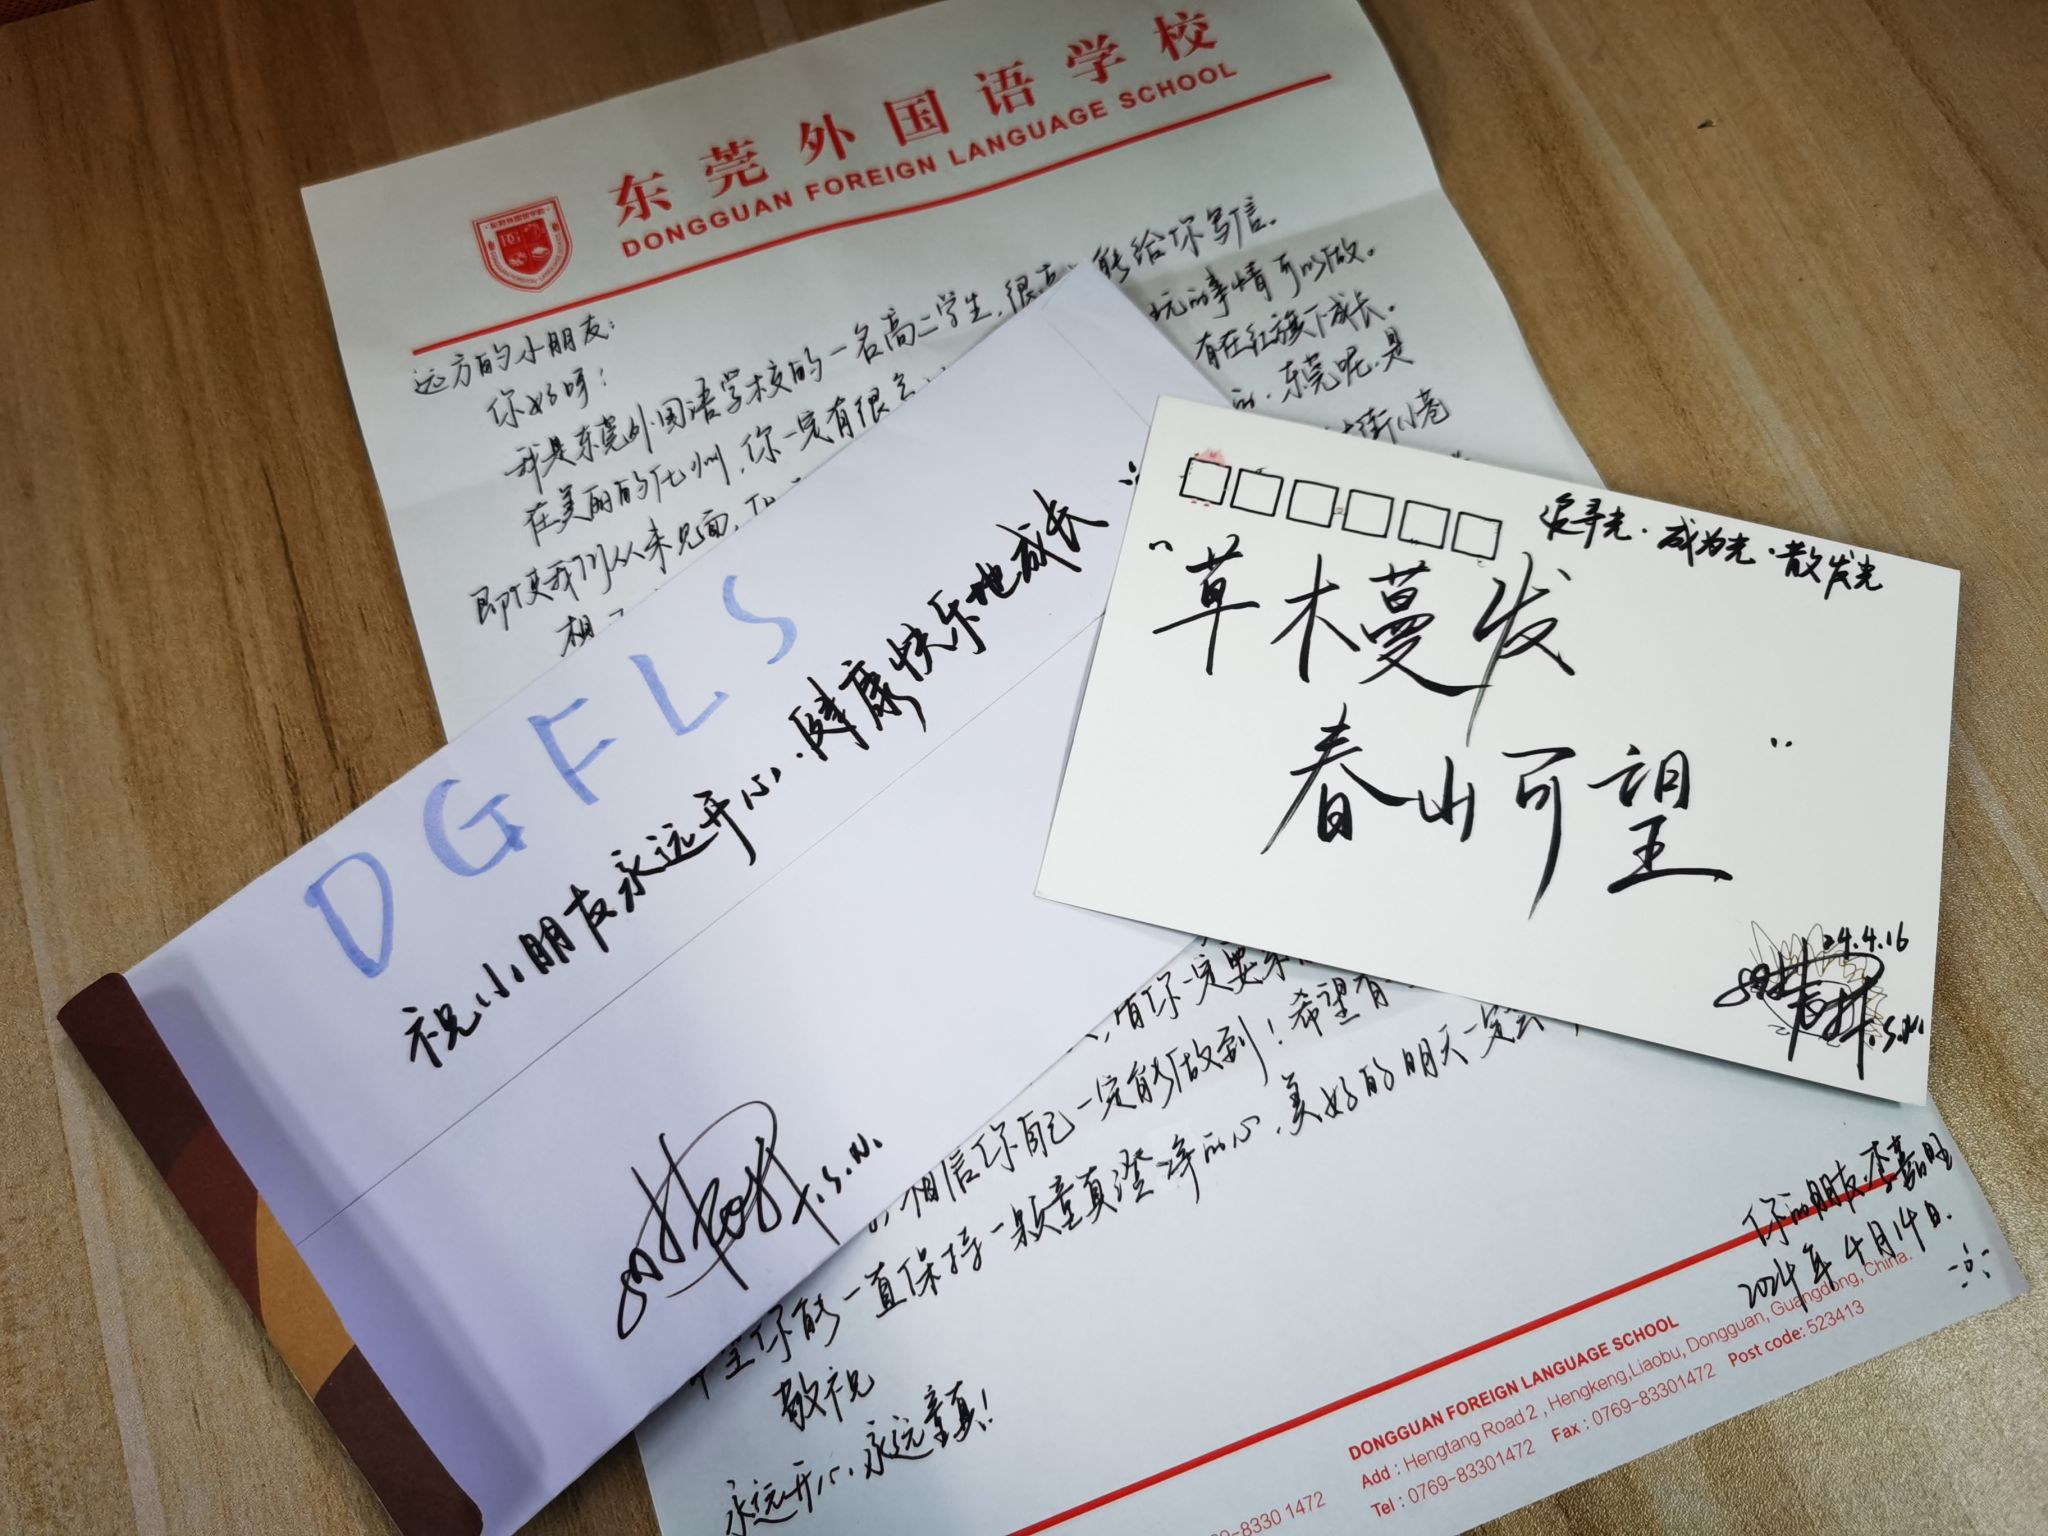 东莞外国语学校
DONGGUAN FOREIGN LANGUAGE SCHOOL
远方的小朋友：
你好呀！
我是东莞外国语学校的一名高二学生，很高 能给你写信。
在美丽的化州，你一定有很多 玩的事情可以做。
即使我们从未见面， 有在红旗下成长。
相 东莞呢，是
街小巷
DGFLS
祝小朋友永远开心，健康快乐地成长
T.S.N.
追寻光·成为光·散发光
“草木蔓发
春山可望”
24.4.16
T.S.N.
你一定要
相信你自己一定能够做到！希望有
望你能一直保持一颗童真澄净的心，美好的明天一定会
敬祝
永远开心，永远童真！
你的朋友：李嘉旺
2024年4月14日.
DONGGUAN FOREIGN LANGUAGE SCHOOL
Add : Hengtang Road 2 , Hengkeng,Liaobu, Dongguan, Guangdong, China.
Tel : 0769-83301472 Fax : 0769-83301472 Post code: 523413
-8330 1472